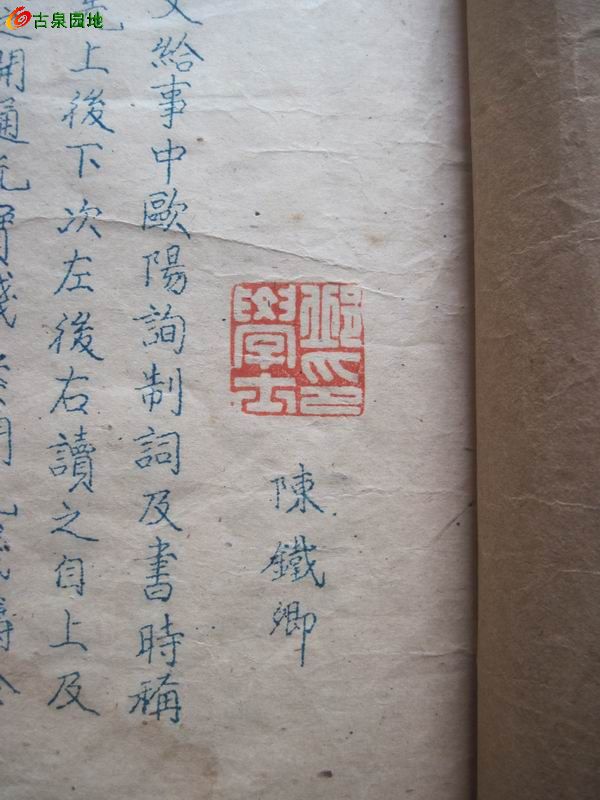 古泉园地
陳鐵卿
學士
文給事中歐陽詢制詞及書時稱
上後下次左後右讀之自上及
開通元寶錢